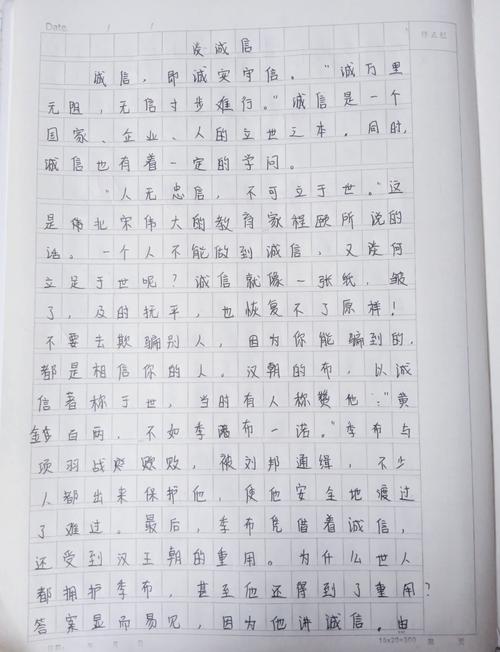 Date / /
谈诚信
诚信，即诚实守信。“诚万里
无阻，无信寸步难行。”诚信是一个
国家、企业、人的立世之本，同时，
诚信也有着一定的学问。
“人无忠信，不可立于世。”这
是伟北宋伟大的教育家程颐所说的
话。一个人不能做到诚信，又谈何
立足于世呢？诚信就像一张纸，皱
了，及的抚平，也恢复不了原样！
不要去欺骗别人，因为你能骗到的，
都是相信你的人。汉朝的布，以诚
信著称于世，当时有人称赞他：“黄
金百两，不如季布一诺。”季布与
项羽战败，被刘邦通缉，不少
人都出来保护他，使他安全地渡过
了难过。最后，季布凭借着诚信，
还受到汉王朝的重用。为什么世人
都拥护季布，甚至他还得到了重用？
答案显而易见，因为他讲诚信。由
15×20=300